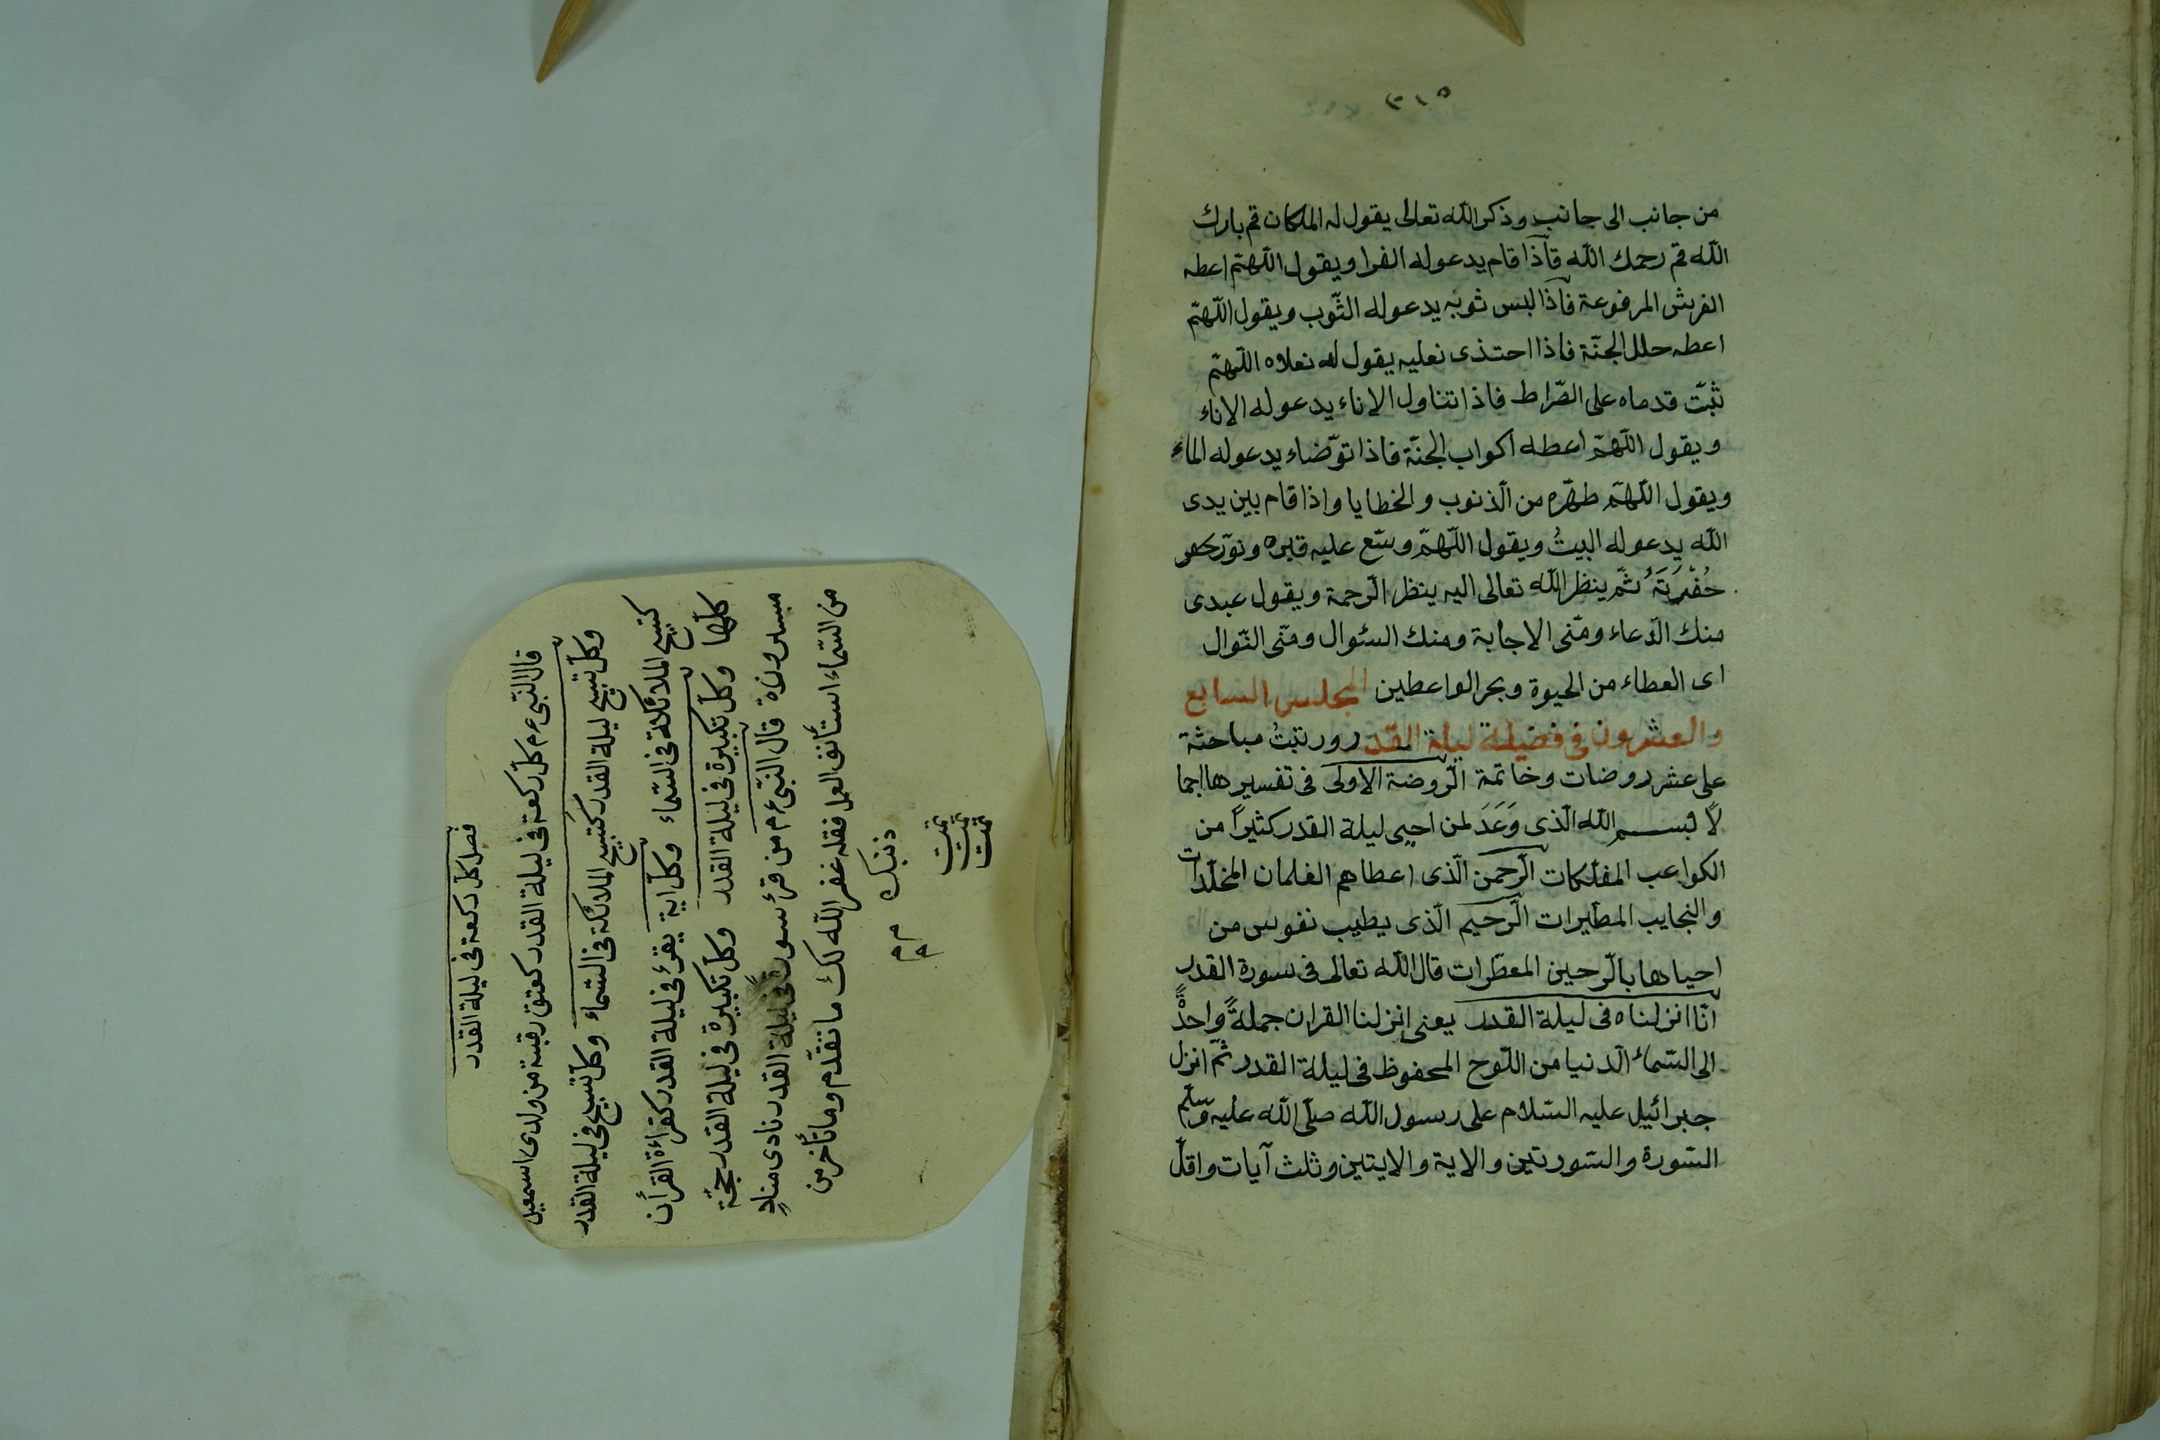 من جانب الى جانب وذكر الله تعالى يقول له الملكان قم بارك
الله قم رحمك الله فاذا قام يدعوله الفرا ويقول اللهمّ اعطه
الفرش المرفوعة فاذا لبس ثوبه يدعوله الثّوب ويقول اللّهمّ
اعطه حلل الجنّة فاذا احتذى نعليه يقول له نعلاه اللّهمّ
ثبّت قدماه على الصّراط فاذا تناول الاناء يدعوله الاناء
ويقول اللّهمّ اعطه اكواب الجنّة فاذا توّضاء يدعوله الماء
ويقول اللّهمّ طهّره من الّذنوب والخطايا واذا قام بين يدى
الله يدعوله البيتُ ويقول اللّهمّ وسّع عليه قبره ونوّر
حُفْرَتَهُ ثمّ ينظر الله تعالى اليه ينظر الّرحمة ويقول عبدى
منك الّدعاء ومنّى الاجابة ومنك السئوال ومنّى النّوال
اى العطاء من الحيوة وبحر الواعظين المجلس السابع
والعشرون فى فضيلة ليلة القدر ورتبتُ مباحثة
على عشر روضات وخاتمة الّروضة الاولى فى تفسيرها اجما
لًا لبسم الله الّذى وَعَدَ لمن احيى ليلة القدر كثيرًا من
الكواعب المفلّكات الّرحمن الّذى اعطاهم الغلمان المخلّدات
والنجايب المطيرات الّرحيم الّذى يطيب نفوس من
احياها بالّرحين المعطّرات قال الله تعالى فى سورة القدر
انّا انزلناه فى ليلة القدر يعنى انزلنا القران جملةً واحدةً
الى السّماء الّدنيا من اللّوح المحفوظ فى ليلة القدر ثمّ انزل
جبرائيل عليه السّلام على رسول الله صلّى الله عليه وسلّم
السّورة والسّورتين والاية والايتين وثلث آيات واقلّ
فصل كلّ ركعة فى ليلة القدر
قال النّبى ءم كلّ ركعة فى ليلة القدر كعتق رقبة من ولدى اسمعيل
وكلّ تسبيح ليلة القدر كتسبيح الملائكة فى السّماء وكلّ تسبيح فى ليلة القدر
كتسبيح الملائكة فى السّماء وكلّ اية يقرئ فى ليلة القدر كقراءة القرأن
كلّها وكلّ تكبيرة فى ليلة القدر وكلّ تكبيرة فى ليلة القدر حجّة
مبرورة قال النّبى ءم من قرئ سورة فى ليلة القدر نادى منادٍ
من السّماء استأنف العمل فقد غفر الله لك ما تقدّم وما تأخّر من
ذنبك
م م م
تمت
تمت
تمت